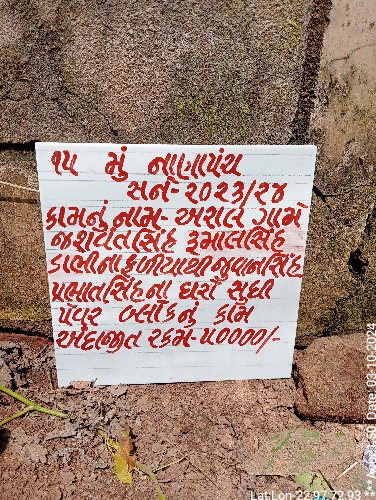 ૧૫ મું નાણાપંચ
સને-૨૦૨૩/૨૪
કામનું નામ-અસલ ગામે
જશવંતસિંહ રૂમાલસિંહ
ડાભીના ફળીયાથી જુવાનસિંહ
પ્રભાતસિંહના ઘરો સુધી
પેવર બ્લોકનું કામ
અંદાજીત રકમ-૫૦૦૦૦/-
Lat Lon 22.97,72.93
Date 03-10-2024